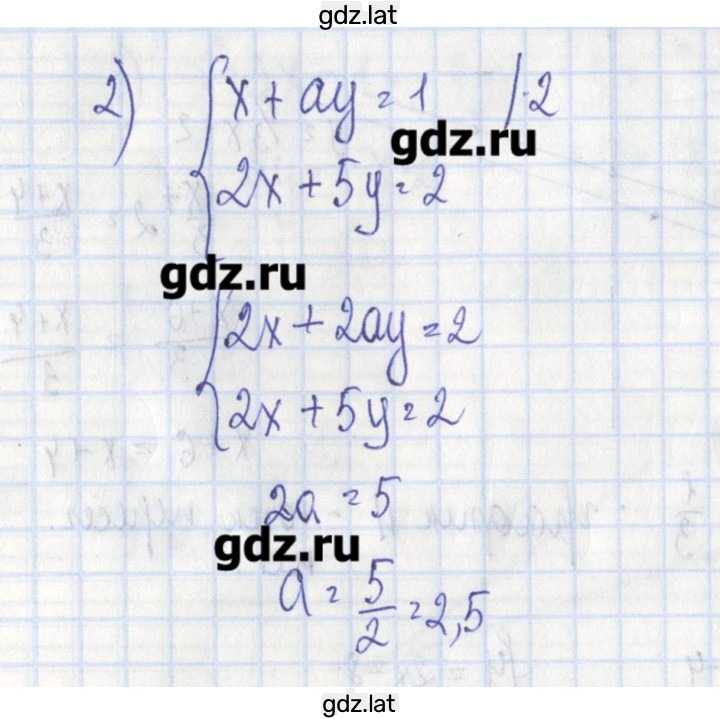 gdz.lat
2) { x + ay = 1 | · 2
gdz.ru
2x + 5y = 2
gdz.ru
{ 2x + 2ay = 2
2x + 5y = 2
2a = 5
gdz.ru
a = 5/2 = 2,5
gdz.lat